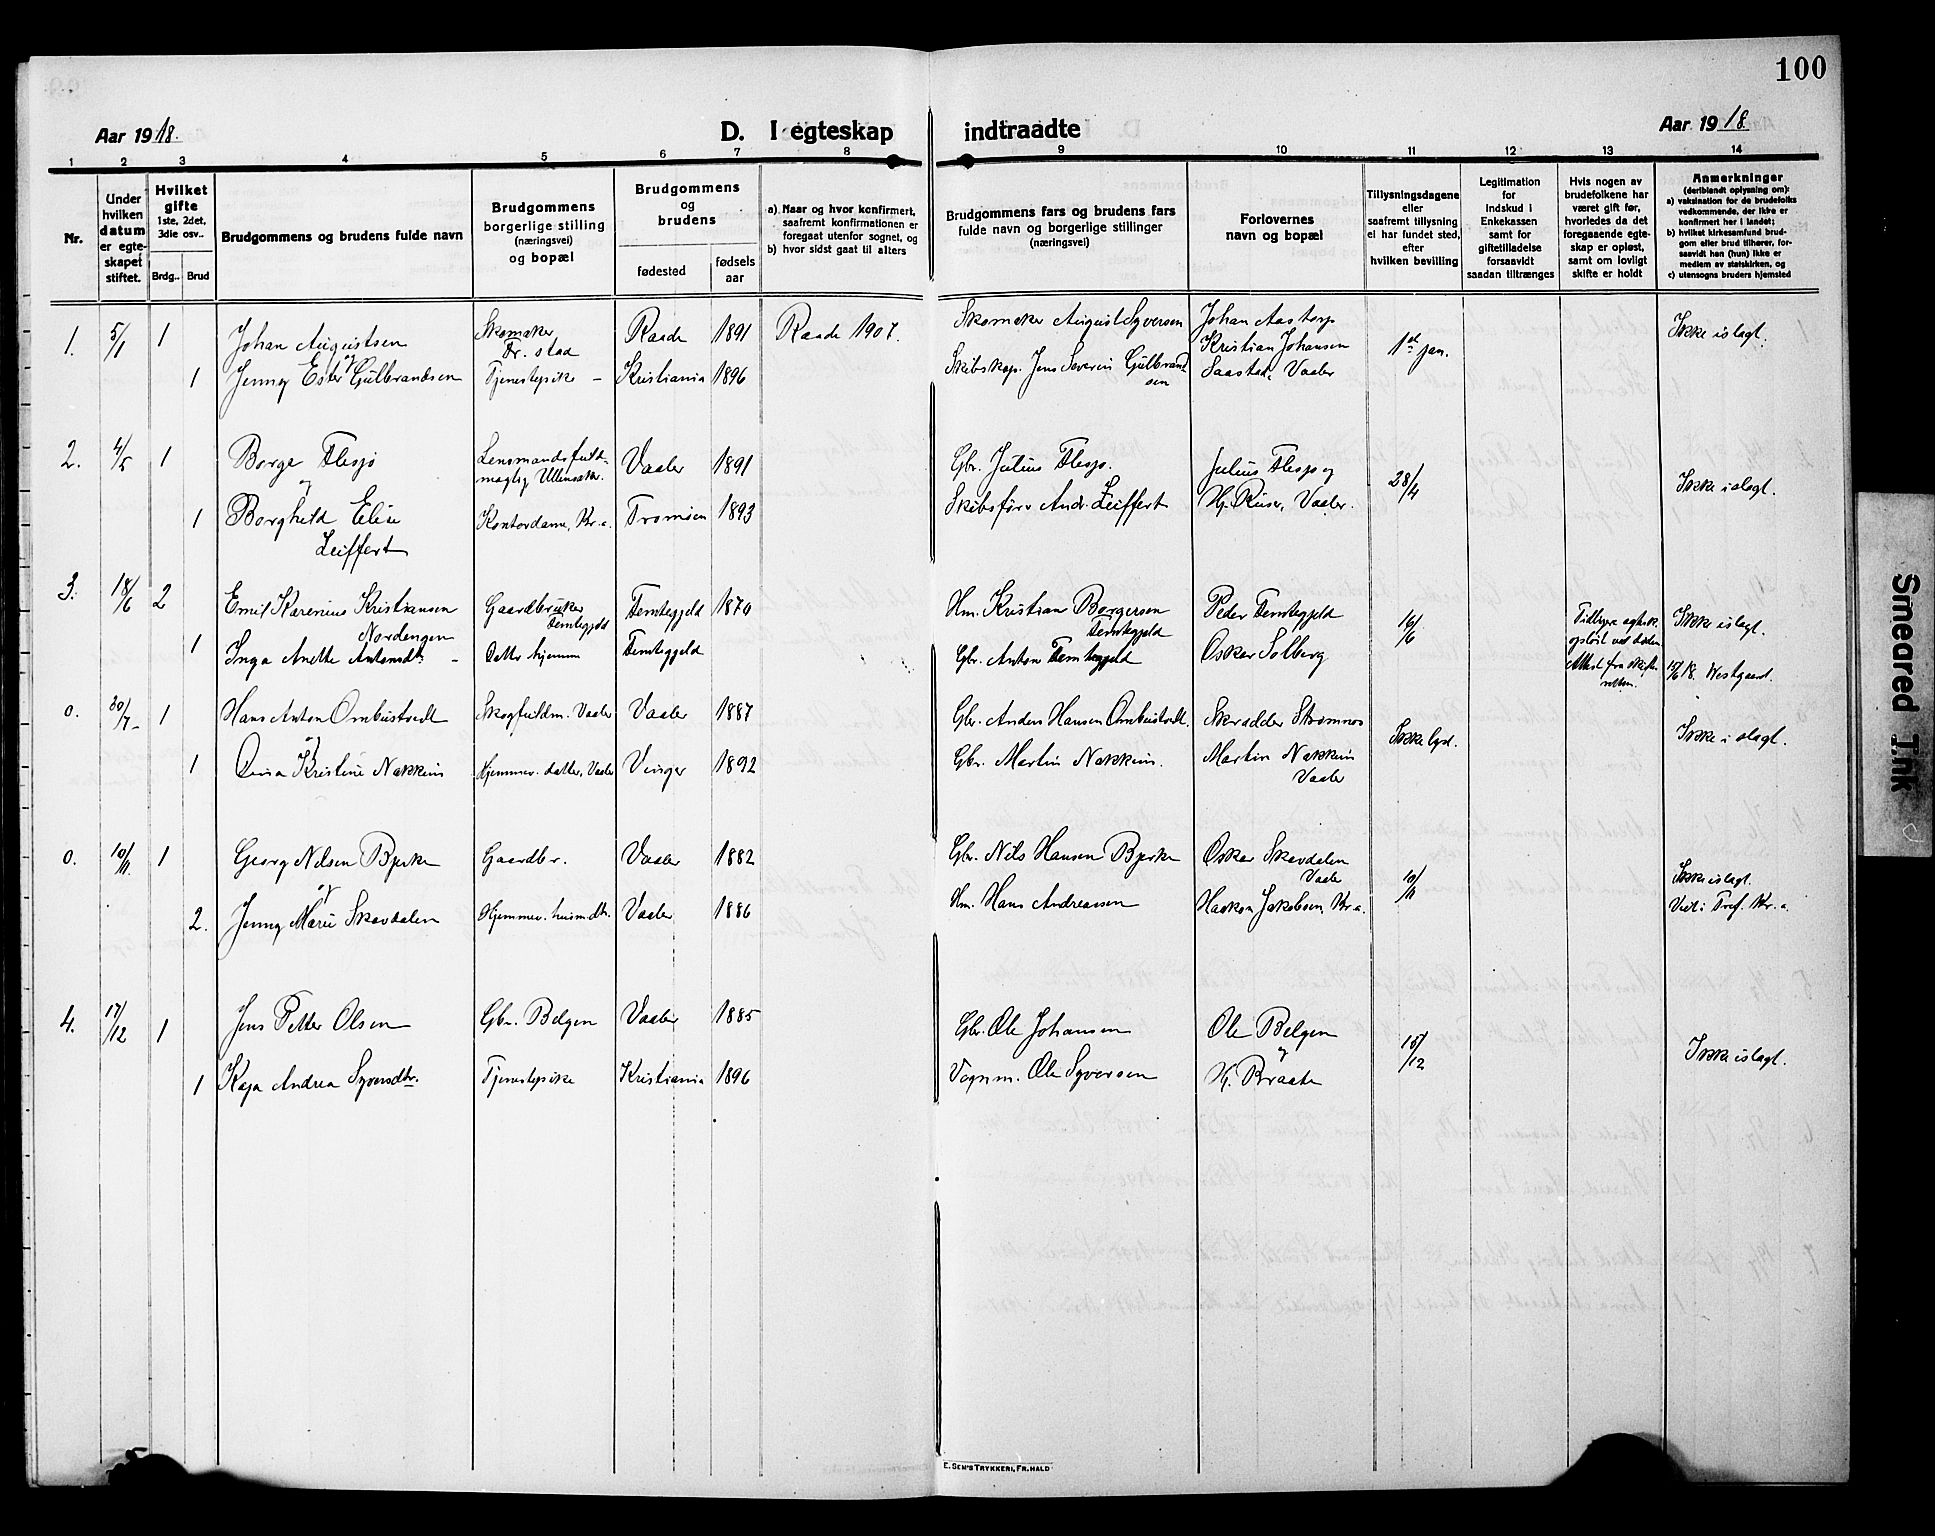 100
Aar 1918.
D. I egteskap indtraadte
Aar 1918.
1 2 3 4 5 6 7 8 9 10 11 12 13 14
Nr.
Under
hvilken
datum
er egte-
skapet
stiftet.
Hvilket
gifte
1ste, 2det,
3die osv..
Brdg.. Brud
Brudgommens og brudens fulde navn
Brudgommens
borgerlige stilling
(næringsvei)
og bopæl
Brudgommens
og
brudens
fødested
fødsels
aar
a) Naar og hvor konfirmert,
saafremt konfirmationen er
foregaat utenfor sognet, og
b) hvor sidst gaat til alters
Brudgommens fars og brudens fars
fulde navn og borgerlige stillinger
(næringsvei)
Forlovernes
navn og bopæl
Tillysningsdagene
eller
saafremt tillysning
ei har fundet sted,
efter
hvilken bevilling
Legitimation
for
Indskud i
Enkekassen
samt for
giftetilladelse
forsaavidt
saadan tiltrænges
Hvis nogen av
brudefolkene har
været gift før,
hvorledes da det
foregaaende egte-
skap er opløst,
samt om lovligt
skifte er holdt
Anmerkninger
(deriblandt oplysning om):
a) vaksination for de brudefolks
vedkommende, der ikke er
konfirmert her i landet;
b) hvilket kirkesamfund brud-
gom eller brud tilhører, for-
saavidt han (hun) ikke er
medlem av statskirken, og
c) utensogns bruders hjemsted
1. 5/1 1 Johan Augustsen Skomaker Fr.stad Raade 1891 Raade 1907. Skomaker August Syversen Johan Aastorp Kristian Johansen 1st jan. Ikke ilagt.
og
1 Jenny Ester Gulbrandsen Tjenestepike - Kristiania 1896 Skibskap. Jens Severin Gulbrandsen Saastad, Vaaler
2. 4/5 1 Borge Flesjø Lensmandsfuldmægtig Ullensaker. Vaaler 1891 Gbr. Julius Flesjø. Julius Flesjø og 28/4 Ikke ilagt.
og
1 Borghild Elise Kontordame, Kr.a. Tromsøen 1893 Skibsfører Andr. Zeiffert Hj. Riiser, Vaaler.
Zeiffert
3. 18/6 2 Emil Karenius Kristiansen Gaardbruker Femtegjeld Femtegjeld 1870 Hm. Kristian Borgersen Femtegjeld Peder Femtegjeld 16/6 Ikke ilagt.
Nordengen
1 Inga Anette Antonsdtr. - Datter hjemme Femtegjeld Gbr. Anton Femtegjeld Oskar Solberg opløst ved døden. Attest fra skifteretten. 15/6 18. Westgaard.
0. 20/7 1 Hans Anton Ombustvedt Skogfuldm. Vaaler Vaaler 1887 Gbr. Anders Hansen Ombustvedt. Skrædder Strømnes Ikke lyst. Ikke ilagt.
og
1 Kristine Nakkim Hjemmev. datter, Vaaler Vinger 1892 Gbr. Martin Nakkim. Martin Nakkim
Vaaler
0. 10/11. 1 Georg Nilsen Bjerke Gaardbr. Vaaler 1882 Gbr. Nils Hansen Bjerke Oskar Skavdalen Vaaler 10/11 Ikke ilagt.
og
2. Jenny Marie Skavdalen Hjemmev. husmdtr. Vaaler 1886 Hm. Hans Andreassen Haakon Jakobsen, Kr.a. Viet i Tref. Kr.a.
4. 17/12 1 Jens Petter Olsen Gbr. Belgen Vaaler 1885 Gbr. Ole Johansen Ole Belgen 15/12 Ikke ilagt.
og
1 Kaja Andrea Syversdtr. Tjenestepike Kristiania 1896 Vognm. Ole Syversen Hj. Braate
E. SEM'S TRYKKERI, FR.HALD
Smeared Ink